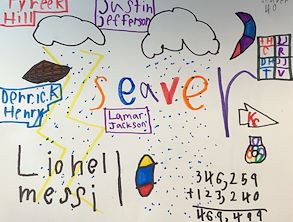 Tyreek
Hill
Justin
Jefferson
40
Derrick
Henry
Seaver
Lamar
Jackson
KC
Lionel
messi
346,259
+123,240
469,499